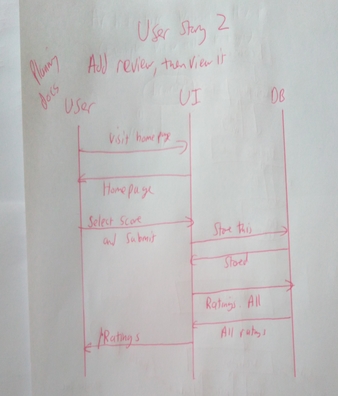 User Story 2
Planning
docs
Add review, then view it
User
UI
DB
Visit homepage
Homepage
Select Score
and Submit
Store this
Stored
Ratings All
All ratings
Ratings